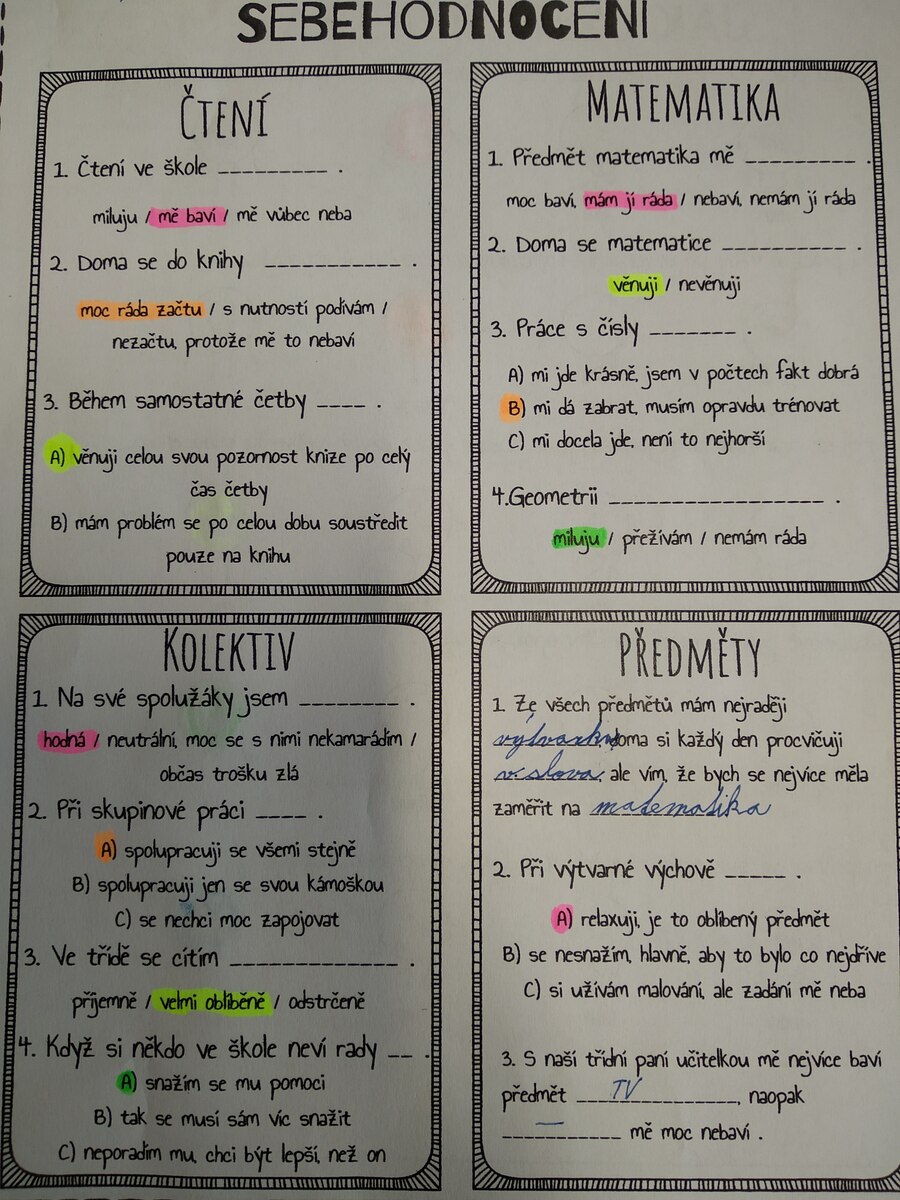 SEBEHODNOCENÍ
ČTENÍ
1. Čtení ve škole _________ .
miluju / mě baví / mě vůbec neba
2. Doma se do knihy ___________ .
moc ráda začtu / s nutností podívám /
nezačtu, protože mě to nebaví
3. Během samostatné četby ____ .
A) věnuji celou svou pozornost knize po celý
čas četby
B) mám problém se po celou dobu soustředit
pouze na knihu
MATEMATIKA
1. Předmět matematika mě _________ .
moc baví, mám jí ráda / nebaví, nemám jí ráda
2. Doma se matematice __________ .
věnuji / nevěnuji
3. Práce s čísly _______ .
A) mi jde krásně, jsem v počtech fakt dobrá
B) mi dá zabrat, musím opravdu trénovat
C) mi docela jde, není to nejhorší
4.Geometrii _________________ .
miluju / přežívám / nemám ráda
KOLEKTIV
1. Na své spolužáky jsem _________ .
hodná / neutrální, moc se s nimi nekamarádím /
občas trošku zlá
2. Při skupinové práci ____ .
A) spolupracuji se všemi stejně
B) spolupracuji jen se svou kámoškou
C) se nechci moc zapojovat
3. Ve třídě se cítím ______________ .
příjemně / velmi oblíbeně / odstrčeně
4. Když si někdo ve škole neví rady __ .
A) snažím se mu pomoci
B) tak se musí sám víc snažit
C) neporadím mu, chci být lepší, než on
PŘEDMĚTY
1. Ze všech předmětů mám nejraději
doma si každý den procvičuji
v. slova, ale vím, že bych se nejvíce měla
zaměřit na matematika
2. Při výtvarné výchově _____ .
A) relaxuji, je to oblíbený předmět
B) se nesnažím, hlavně, aby to bylo co nejdříve
C) si užívám malování, ale zadání mě neba
3. S naší třídní paní učitelkou mě nejvíce baví
předmět TV, naopak
— mě moc nebaví .